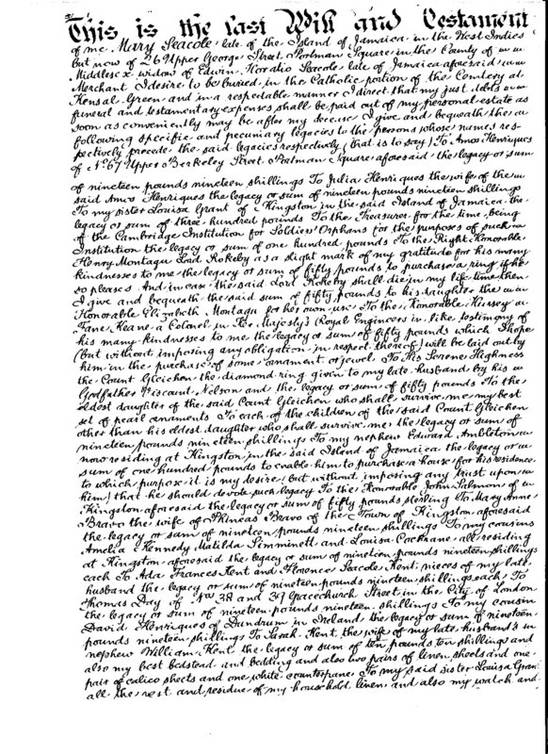 This is the last Will and Testament
of me Mary Seacole late of the Island of Jamaica in the West Indies
but now of 26 Upper George Street Portman Square in the County of
Middlesex widow of Edwin Horatio Seacole late of Jamaica aforesaid
Merchant I desire to be buried in the Catholic portion of the Cemtery at
Kensal Green and in a respectable manner I direct that my just debts
funeral and testamentary expenses shall be paid out of my personal estate as
soon as conveniently may be after my decease I give and bequeath the
following specific and pecuniary legacies to the persons whose names res-
pectively precede the said legacies respectively (that is to say) To Amos Henriques
of No 67 Upper Berkeley Street Portman Square aforesaid the legacy or sum
of nineteen pounds nineteen shillings To Julia Henriques the wife of the
said Amos Henriques the legacy or sum of nineteen pounds nineteen shillings
To my sister Louisa Grant of Kingston in the said Island of Jamaica the
legacy or sum of three hundred pounds To the Treasurer for the time being
of the Cambridge Institution for Soldiers Orphans for the purposes of such
Institution the legacy or sum of one hundred pounds To the Right Honorable
Henry Montagu Lord Rokeby as a slight mark of my gratitude for his many
kindnesses to me the legacy or sum of fifty pounds to purchase a ring if he
so pleases And in case the said Lord Rokeby shall die in my life time then
I give and bequeath the said sum of fifty pounds to his daughter the
Honorable Elizabeth Montagu for her own use To the Honorable Hussey
Fane Keane a Colonel in Her Majesty's Royal Engineers in like testimony of
his many kindnesses to me the legacy or sum of fifty pounds which I hope
(but without imposing any obligation in respect thereof) will be laid out by
him in the purchase of some ornament or jewel To His Serene Highness
the Count Gleichen the diamond ring given to my late husband by his
Godfather Viscount Nelson and the legacy or sum of fifty pounds To the
eldest daughter of the said Count Gleichen who shall survive me my best
set of pearl ornaments To each of the children of the said Count Gleichen
other than his eldest daughter who shall survive me the legacy or sum of
nineteen pounds nineteen shillings To my nephew Edward Ambleton
now residing at Kingston in the said Island of Jamaica the legacy or
sum of one hundred pounds to enable him to purchase a house for his residence
to which purpose it is my desire (but without imposing any trust upon
him) that he should devote such legacy To the Honorable John Salmon of
Kingston aforesaid the legacy or sum of fifty pounds sterling To Mary Anne
Bravo the wife of Phineas Bravo of the Town of Kingston aforesaid
the legacy or sum of nineteen pounds nineteen shillings To my cousins
Amelia Kennedy Matilda Simminett and Louisa Cochrane all residing
at Kingston aforesaid the legacy or sum of nineteen pounds nineteen shillings
each To Ada Frances Kent and Florence Seacole Kent nieces of my late
husband the legacy or sum of nineteen pounds nineteen shillings each To
Thomas Day of Nos 38 and 39 Gracechurch Street in the City of London
the legacy or sum of nineteen pounds nineteen shillings To my cousin
David Henriques of Dundrum in Ireland the legacy or sum of nineteen
pounds nineteen shillings To Sarah Kent the wife of my late husband's
nephew William Kent the legacy or sum of ten pounds ten shillings and
also my best bedstead and bedding and also two pairs of linen sheets and one
pair of calico sheets and one white counterpane To my said sister Louisa Grant
all the rest and residue of my household linen and also my watch and